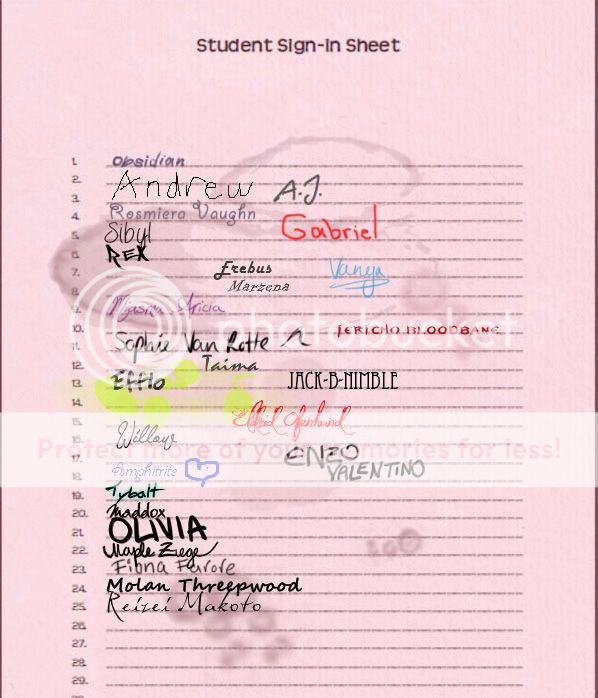 Student Sign-In Sheet
1. Obsidian
2.
3. Andrew A.J.
4. Rosmiera Vaughn
5. Sibyl Gabriel
6. REX
7. Erebus Vanya
8. Marzena
9. Aricia
10. JERICHO BLOODBANE
11. Sophie Van Rotte
12. Taima
13. Efflo JACK-B-NIMBLE
14.
15.
16. Willow
17. ENZO
18. Amphitrite VALENTINO
19. Tybalt
20. Maddox
21. OLIVIA
22. Maple Ziege
23. Fiona Furore
24. Molan Threepwood
25. Reizei Makoto
26.
27.
28.
29.
photobucket
Protect more of your memories for less!